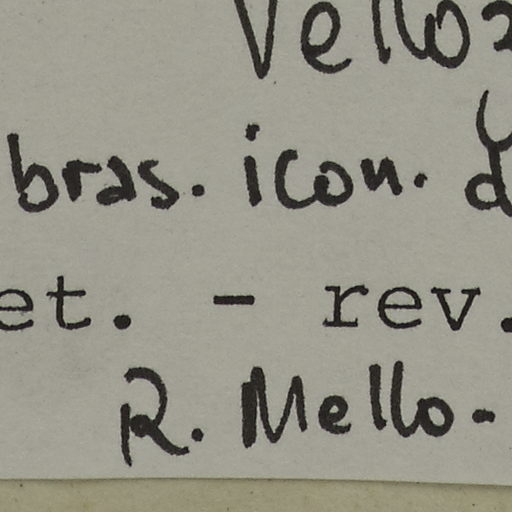 Velloz
bras. icon.
et. - rev.
R. Mello-